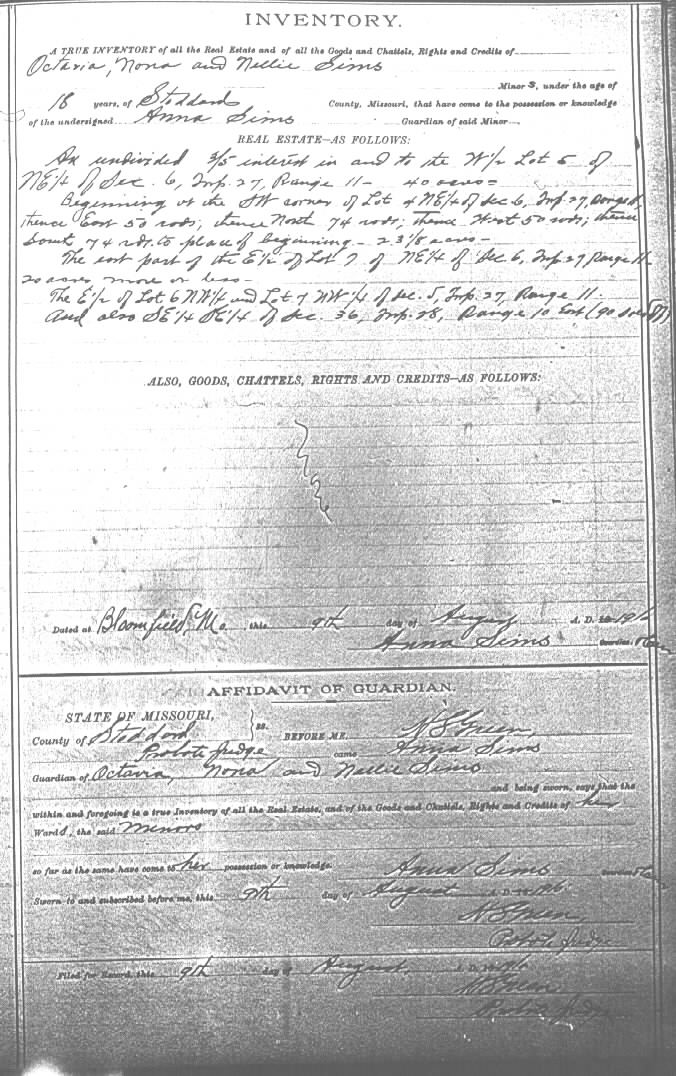 INVENTORY.
A TRUE INVENTORY of all the Real Estate and of all the Goods and Chattels, Rights and Credits of
Octavia, Nona and Nellie Sims
Minors, under the age of
18 years, of Stoddard County, Missouri, that have come to the possession or knowledge
of the undersigned Anna Sims Guardian of said Minor
REAL ESTATE—AS FOLLOWS:
An undivided 3/5 interest in and to the W1/2 Lot 5 of
NE1/4 of Sec. 6, Twp. 27, Range 11 — 40 acres —
Beginning at the SW corner of Lot 4 NE1/4 of Sec 6, Twp. 27, Range 11,
thence East 50 rods; thence North 74 rods; thence West 50 rods; thence
South 74 rds. to place of beginning — 23 1/8 acres —
The east part of the E1/2 of Lot 7 of NE1/4 of Sec 6, Twp. 27 Range 11
20 acres more or less —
The E1/2 of Lot 6 NW1/4 and Lot 7 NW1/4 of Sec. 5, Twp. 27, Range 11.
And also SE1/4 SE1/4 of Sec. 36, Twp. 28, Range 10 East
ALSO, GOODS, CHATTELS, RIGHTS AND CREDITS—AS FOLLOWS:
Dated at Bloomfield, Mo. this 9th day of August A. D. 191
Anna Sims Guardian
AFFIDAVIT OF GUARDIAN.
STATE OF MISSOURI,
County of Stoddard ss. BEFORE ME, Green,
Probate Judge came Anna Sims
Guardian of Octavia, Nona and Nellie Sims
and being sworn, says that the
within and foregoing is a true Inventory of all the Real Estate, and of the Goods and Chattels, Rights and Credits of her
Wards, the said minors
so far as the same have come to her possession or knowledge. Anna Sims Guardian
Sworn to and subscribed before me, this 9th day of August A. D.
Green
Probate Judge
Filed for Record, this 9th day of August, A. D.
Green
Probate Judge